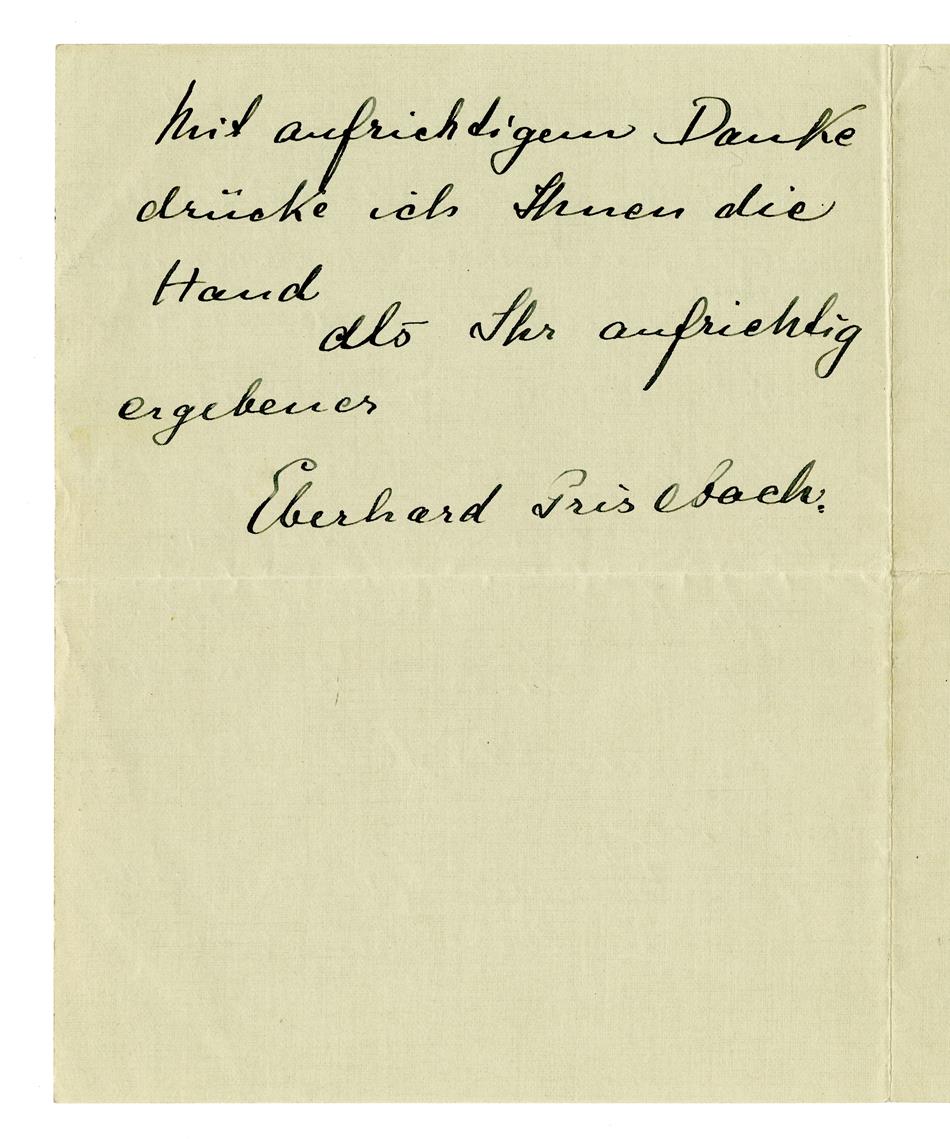 Mit aufrichtigem Danke
drücke ich Ihnen die
Hand
als Ihr aufrichtig
ergebener
Eberhard